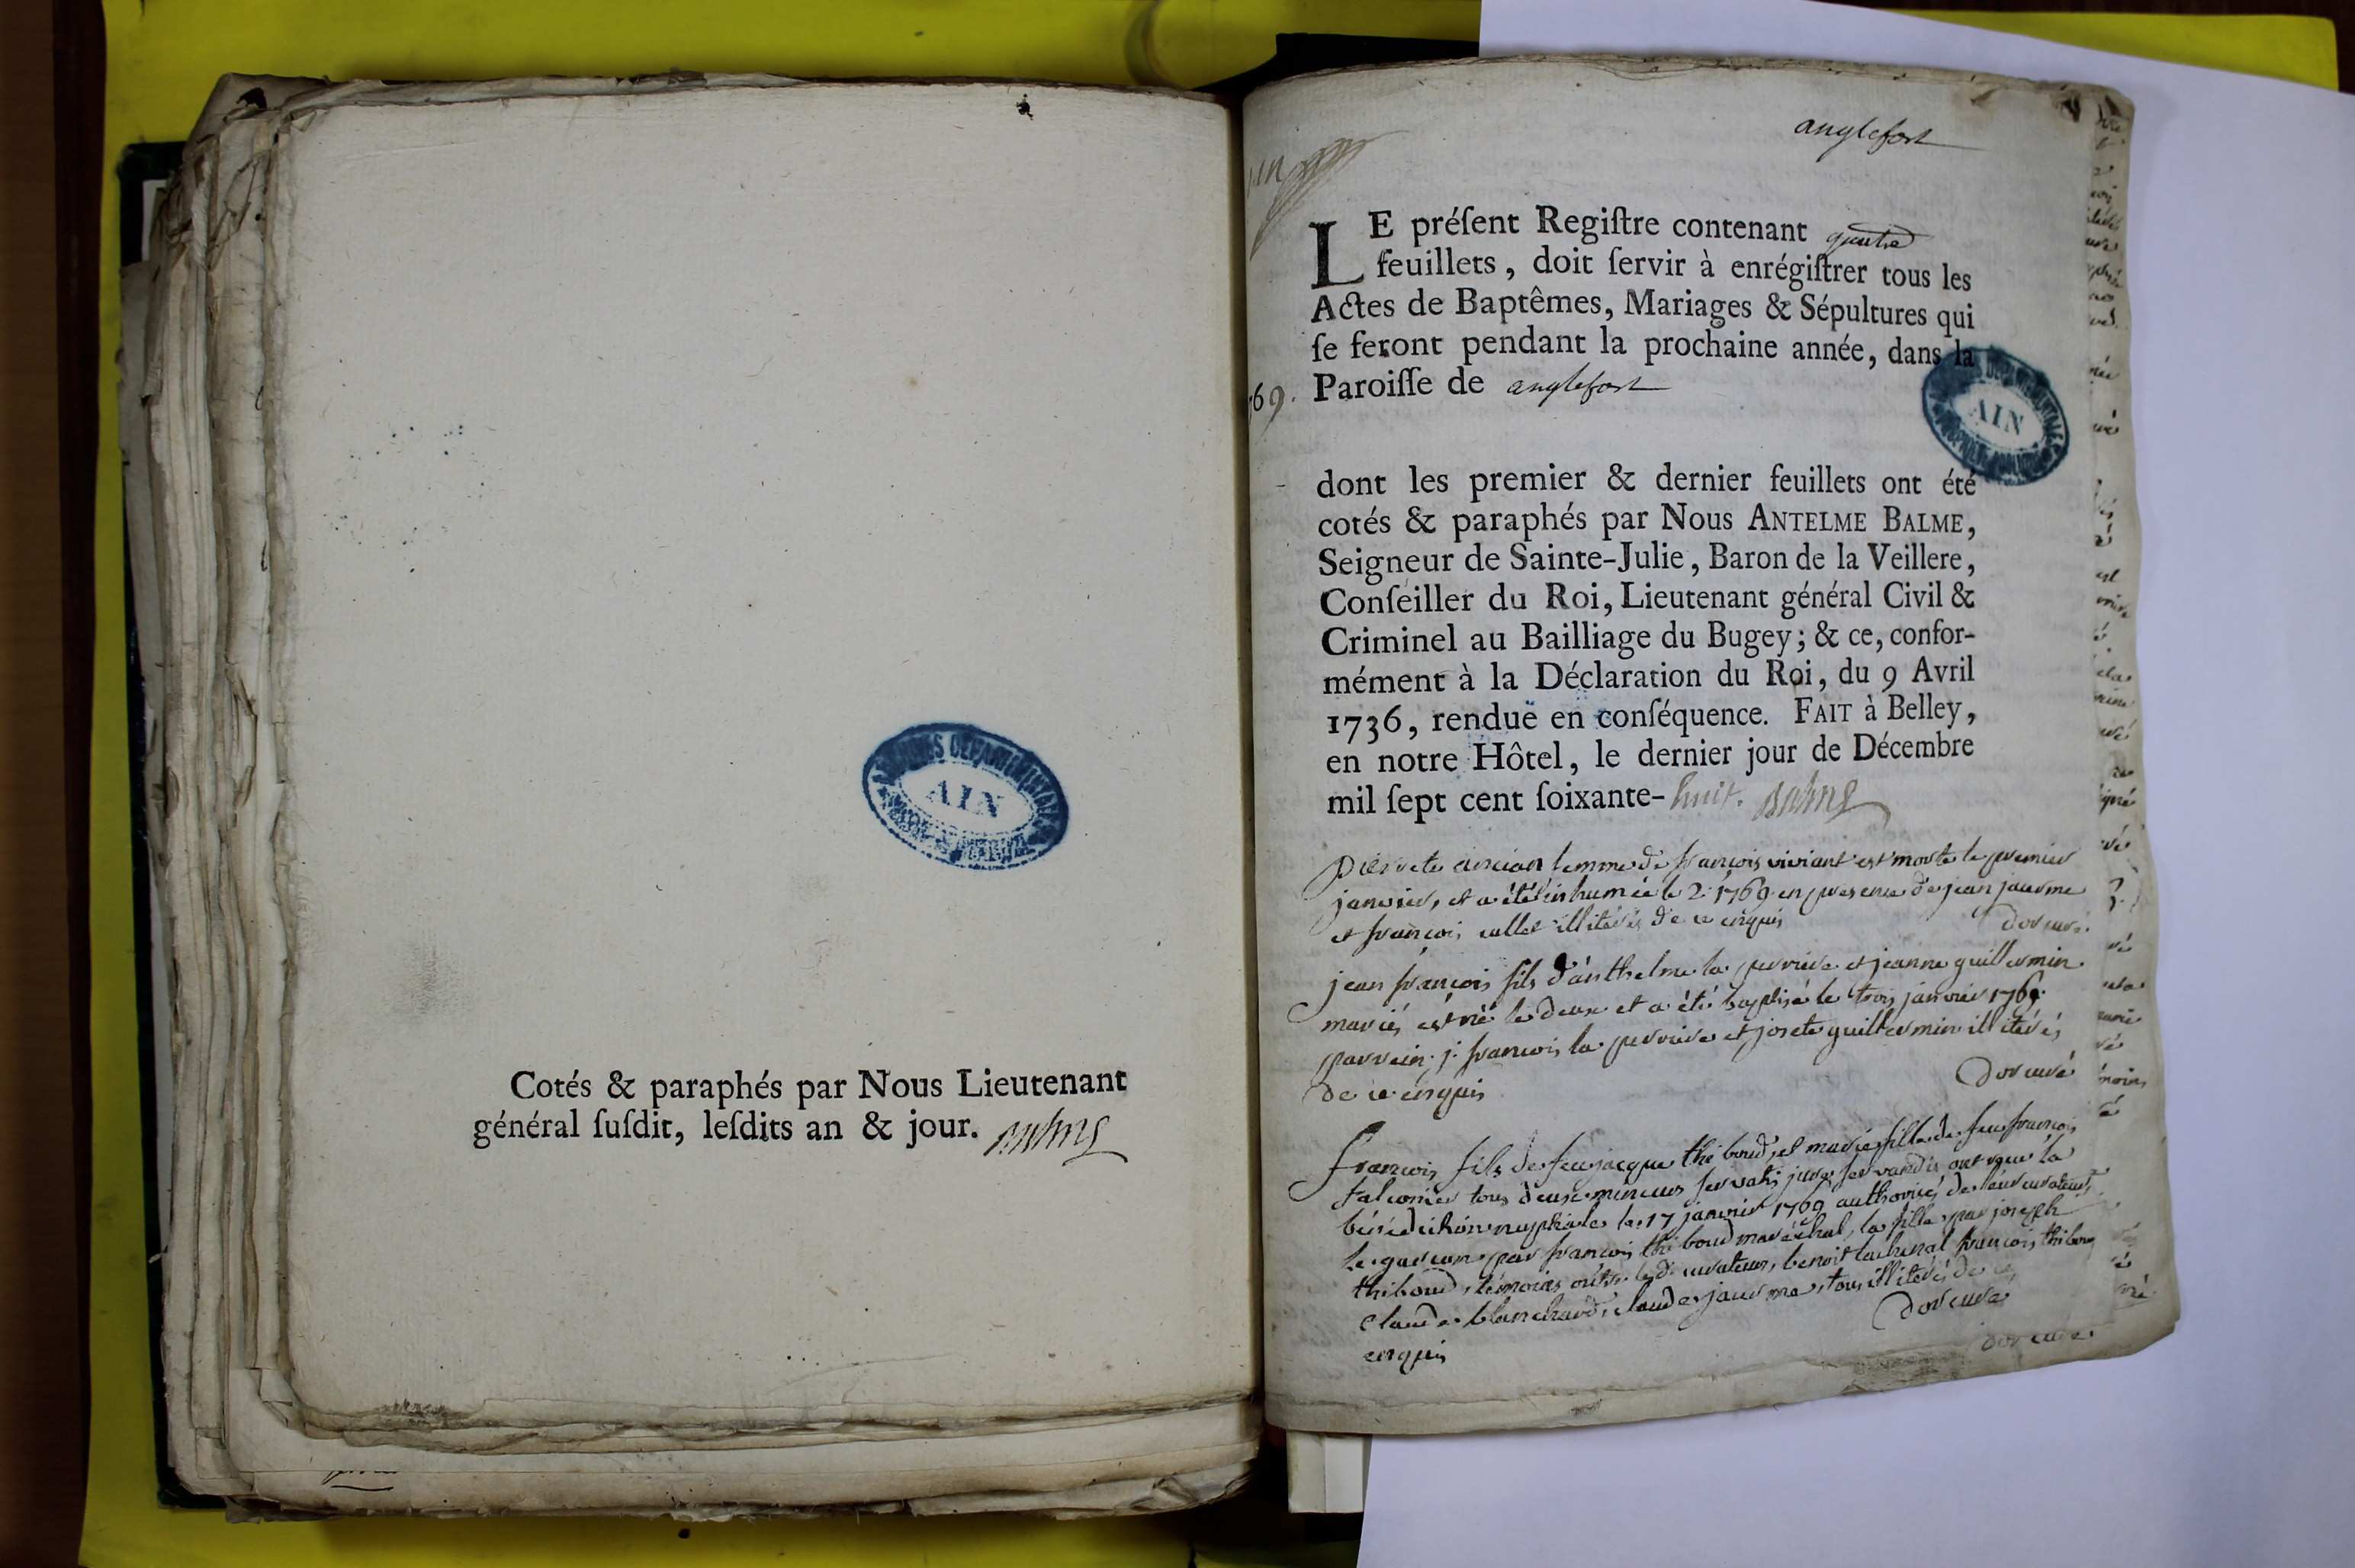 Cotés & paraphés par Nous Lieutenant
général ſuſdit, leſdits an & jour. Balme
anglefort
un
LE préſent Regiſtre contenant quatre
feuillets, doit ſervir à enrégiſtrer tous les
Actes de Baptêmes, Mariages & Sépultures qui
ſe feront pendant la prochaine année, dans la
69. Paroiſſe de anglefort
dont les premier & dernier feuillets ont été
cotés & paraphés par Nous ANTELME BALME,
Seigneur de Sainte-Julie, Baron de la Veillere,
Conſeiller du Roi, Lieutenant général Civil &
Criminel au Bailliage du Bugey; & ce, confor-
mément à la Déclaration du Roi, du 9 Avril
1736, renduë en conſéquence. FAIT à Belley,
en notre Hôtel, le dernier jour de Décembre
mil ſept cent ſoixante-huit. Balme
pierrete ancian femme de françois viviant est morte le premier
janvier, et a été inhumée le 2 1769 en presence de jean jaurme
et françois callet illiterés de ce enquis dor curé
jean françois fils d'anthelme la perriere et jeanne guillermin
mariés est né le deux et a été baptisé le trois janvier 1769
parrein j. françois la perriere et josete guillermin illiterés
de ce enquis dor curé
françois fils de feu jacque thiboud, et marie fille de feu françois
falconier tous deux mineurs servatis jure servandis ont reçu la
bénédiction nuptiale le 17 janvier 1769 authorisés de leur curateurs
le garcon par françois thiboud maréchal, la fille par joseph
thiboud, témoins outre les d. curateurs, benoit lachenal françois thiboud
claude blanchard, claude jaurme, tous illiterés de ce
enquis dor curé
dor curé
AIN
AIN